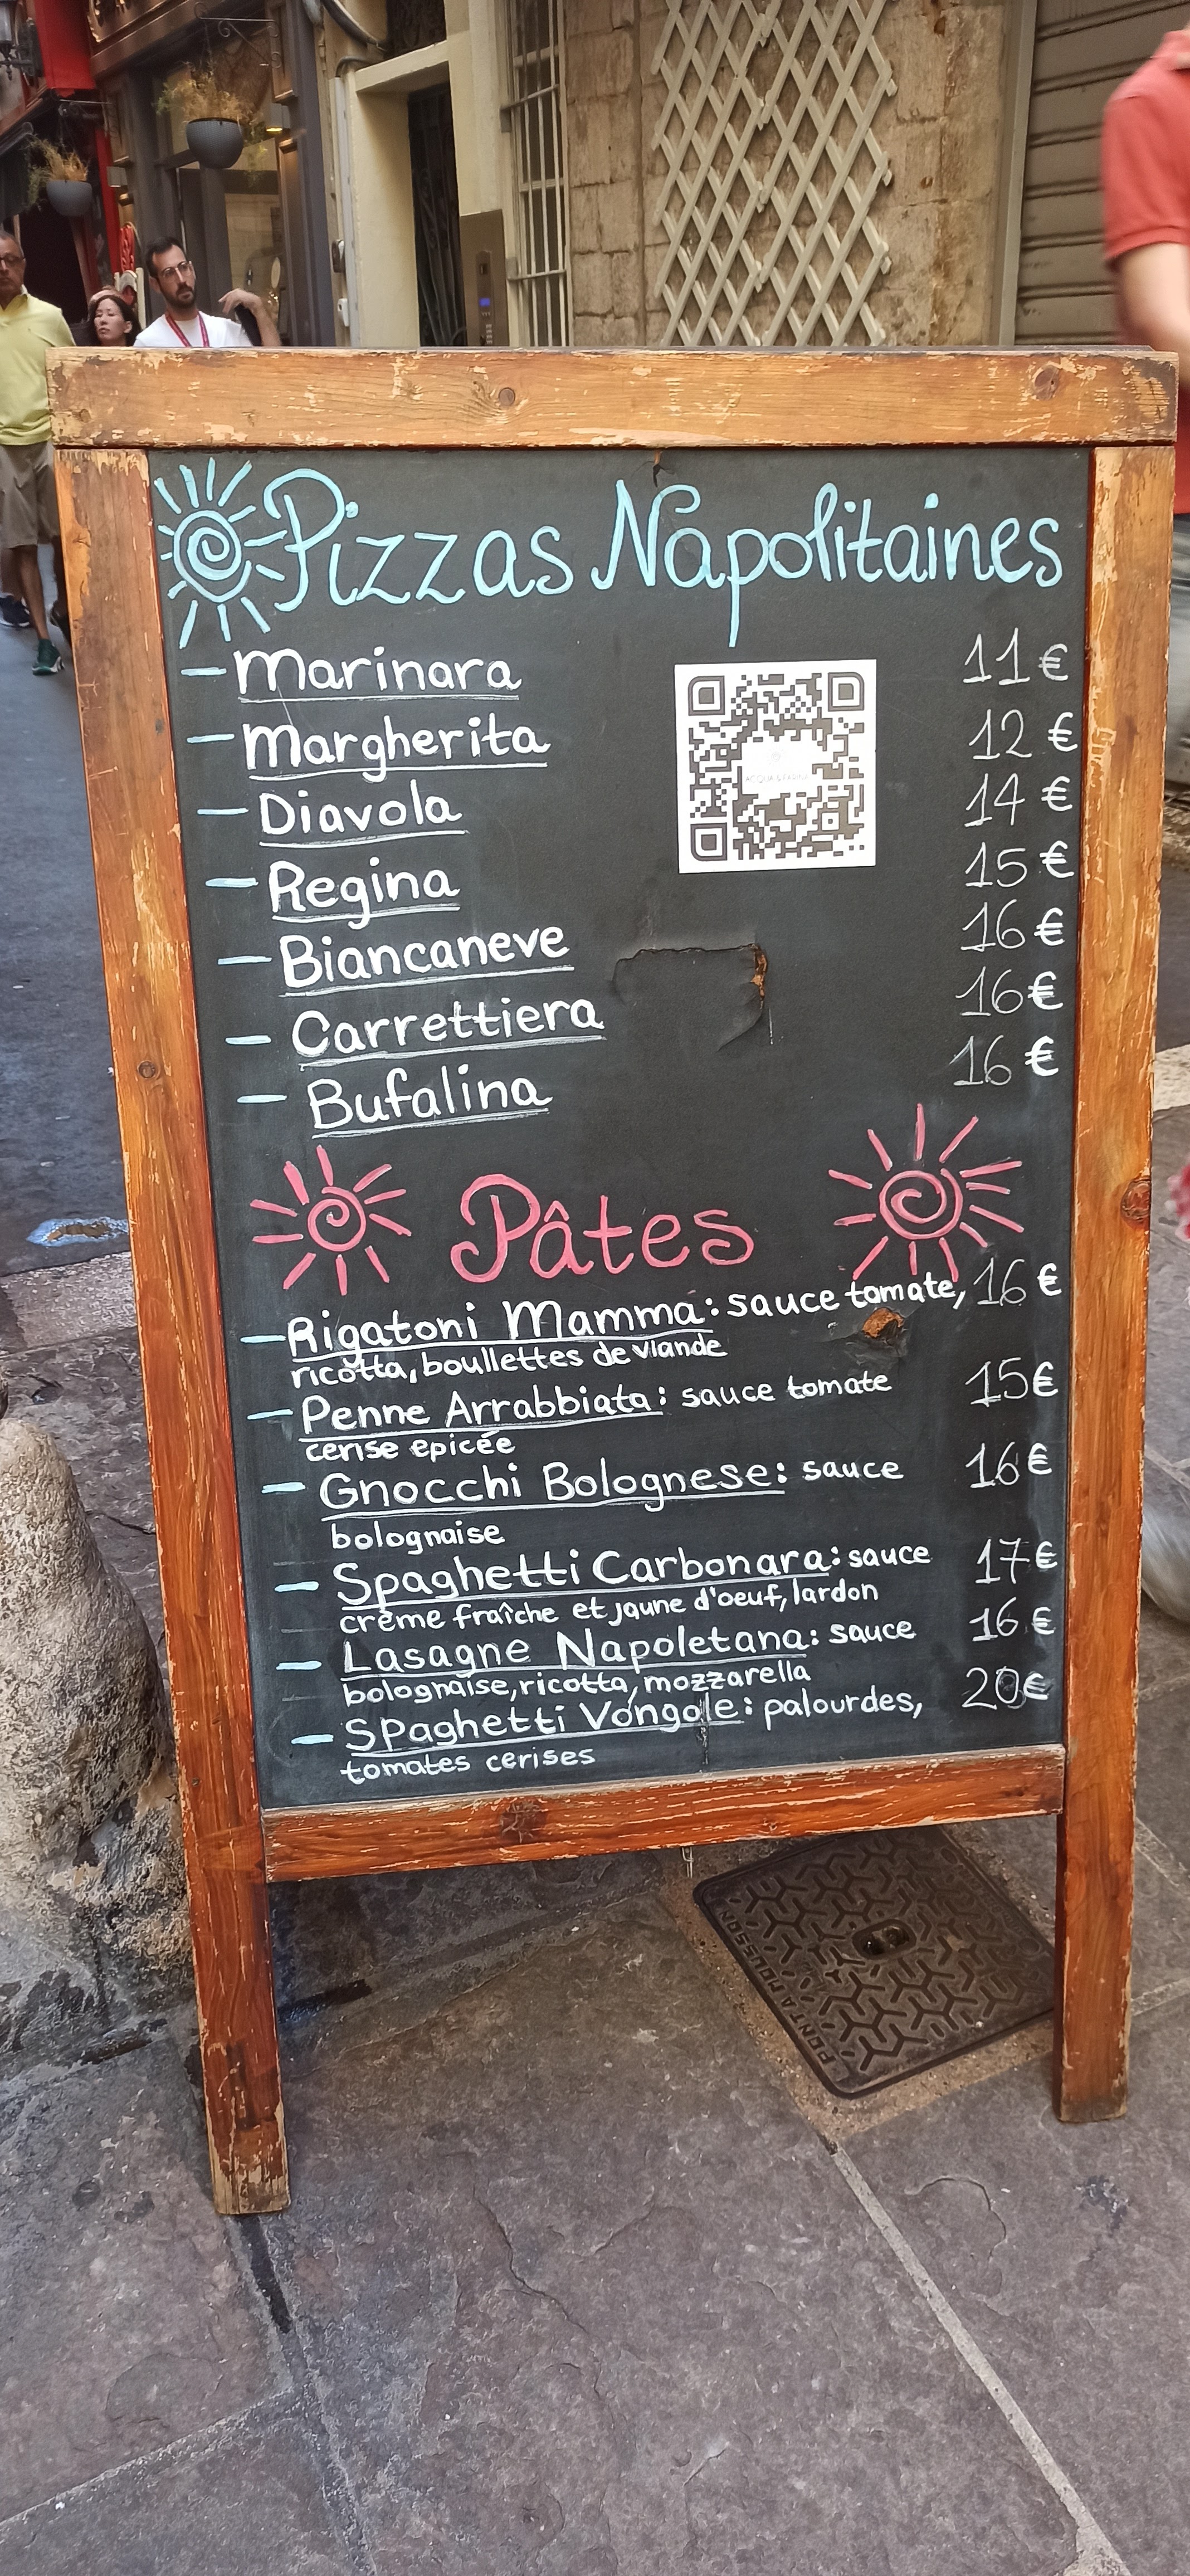 Pizzas Napolitaines
- Marinara 11 €
- Margherita 12 €
- Diavola 14 €
- Regina 15 €
- Biancaneve 16 €
- Carrettiera 16 €
- Bufalina 16 €
Pâtes
- Rigatoni Mamma: sauce tomate, 16 €
ricotta, boullettes de viande
- Penne Arrabbiata: sauce tomate 15 €
cerise epicée
- Gnocchi Bolognese: sauce 16 €
bolognaise
- Spaghetti Carbonara: sauce 17 €
crème fraîche et jaune d'oeuf, lardon
- Lasagne Napoletana: sauce 16 €
bolognaise, ricotta, mozzarella
- Spaghetti Vongole: palourdes, 20 €
tomates cerises
PONT A MOUSSON